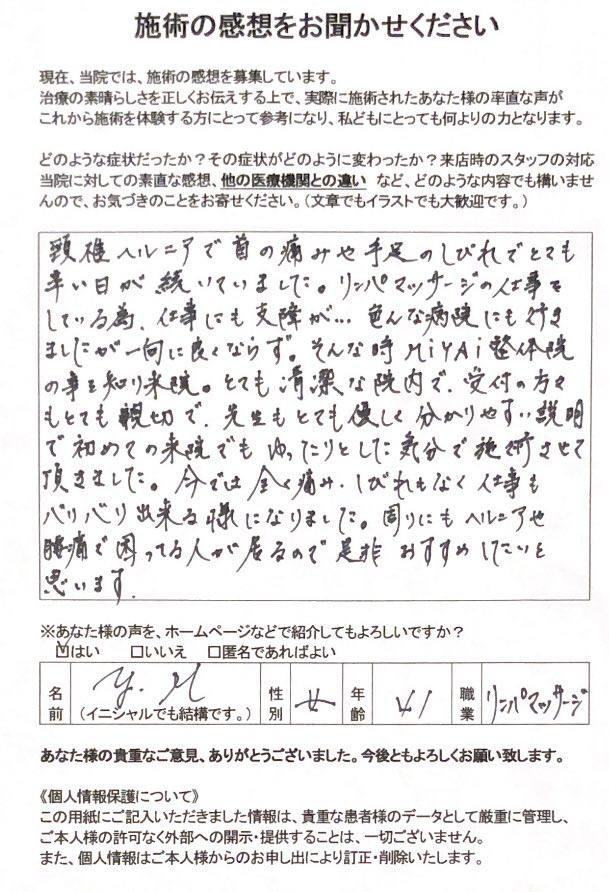 施術の感想をお聞かせください
現在、当院では、施術の感想を募集しています。
治療の素晴らしさを正しくお伝えする上で、実際に施術されたあなた様の率直な声が
これから施術を体験する方にとって参考になり、私どもにとっても何よりの力となります。
どのような症状だったか？その症状がどのように変わったか？来店時のスタッフの対応
当院に対しての素直な感想、他の医療機関との違い など、どのような内容でも構いませ
んので、お気づきのことをお寄せください。（文章でもイラストでも大歓迎です。）
頸椎ヘルニアで首の痛みや手足のしびれでとても
辛い日が続いていました。リンパマッサージの仕事を
している為、仕事にも支障が…色んな病院にも行き
ましたが一向に良くならず。そんな時MiYAi整体院
の事を知り来院。とても清潔な院内で、受付の方々
もとても親切で、先生もとても優しく分かりやすい説明
で初めての来院でもゆったりとした気分で施術させて
頂きました。今では全く痛み・しびれもなく仕事も
バリバリ出来る様になりました。周りにもヘルニアや
腰痛で困ってる人が居るので是非おすすめしたいと
思います。
※あなた様の声を、ホームページなどで紹介してもよろしいですか？
☑はい □いいえ □匿名であればよい
名前 Y.M （イニシャルでも結構です。） 性別 女 年齢 41 職業 リンパマッサージ
あなた様の貴重なご意見、ありがとうございました。今後ともよろしくお願い致します。
《個人情報保護について》
この用紙にご記入いただきました情報は、貴重な患者様のデータとして厳重に管理し、
ご本人様の許可なく外部への開示・提供することは、一切ございません。
また、個人情報はご本人様からのお申し出により訂正・削除いたします。